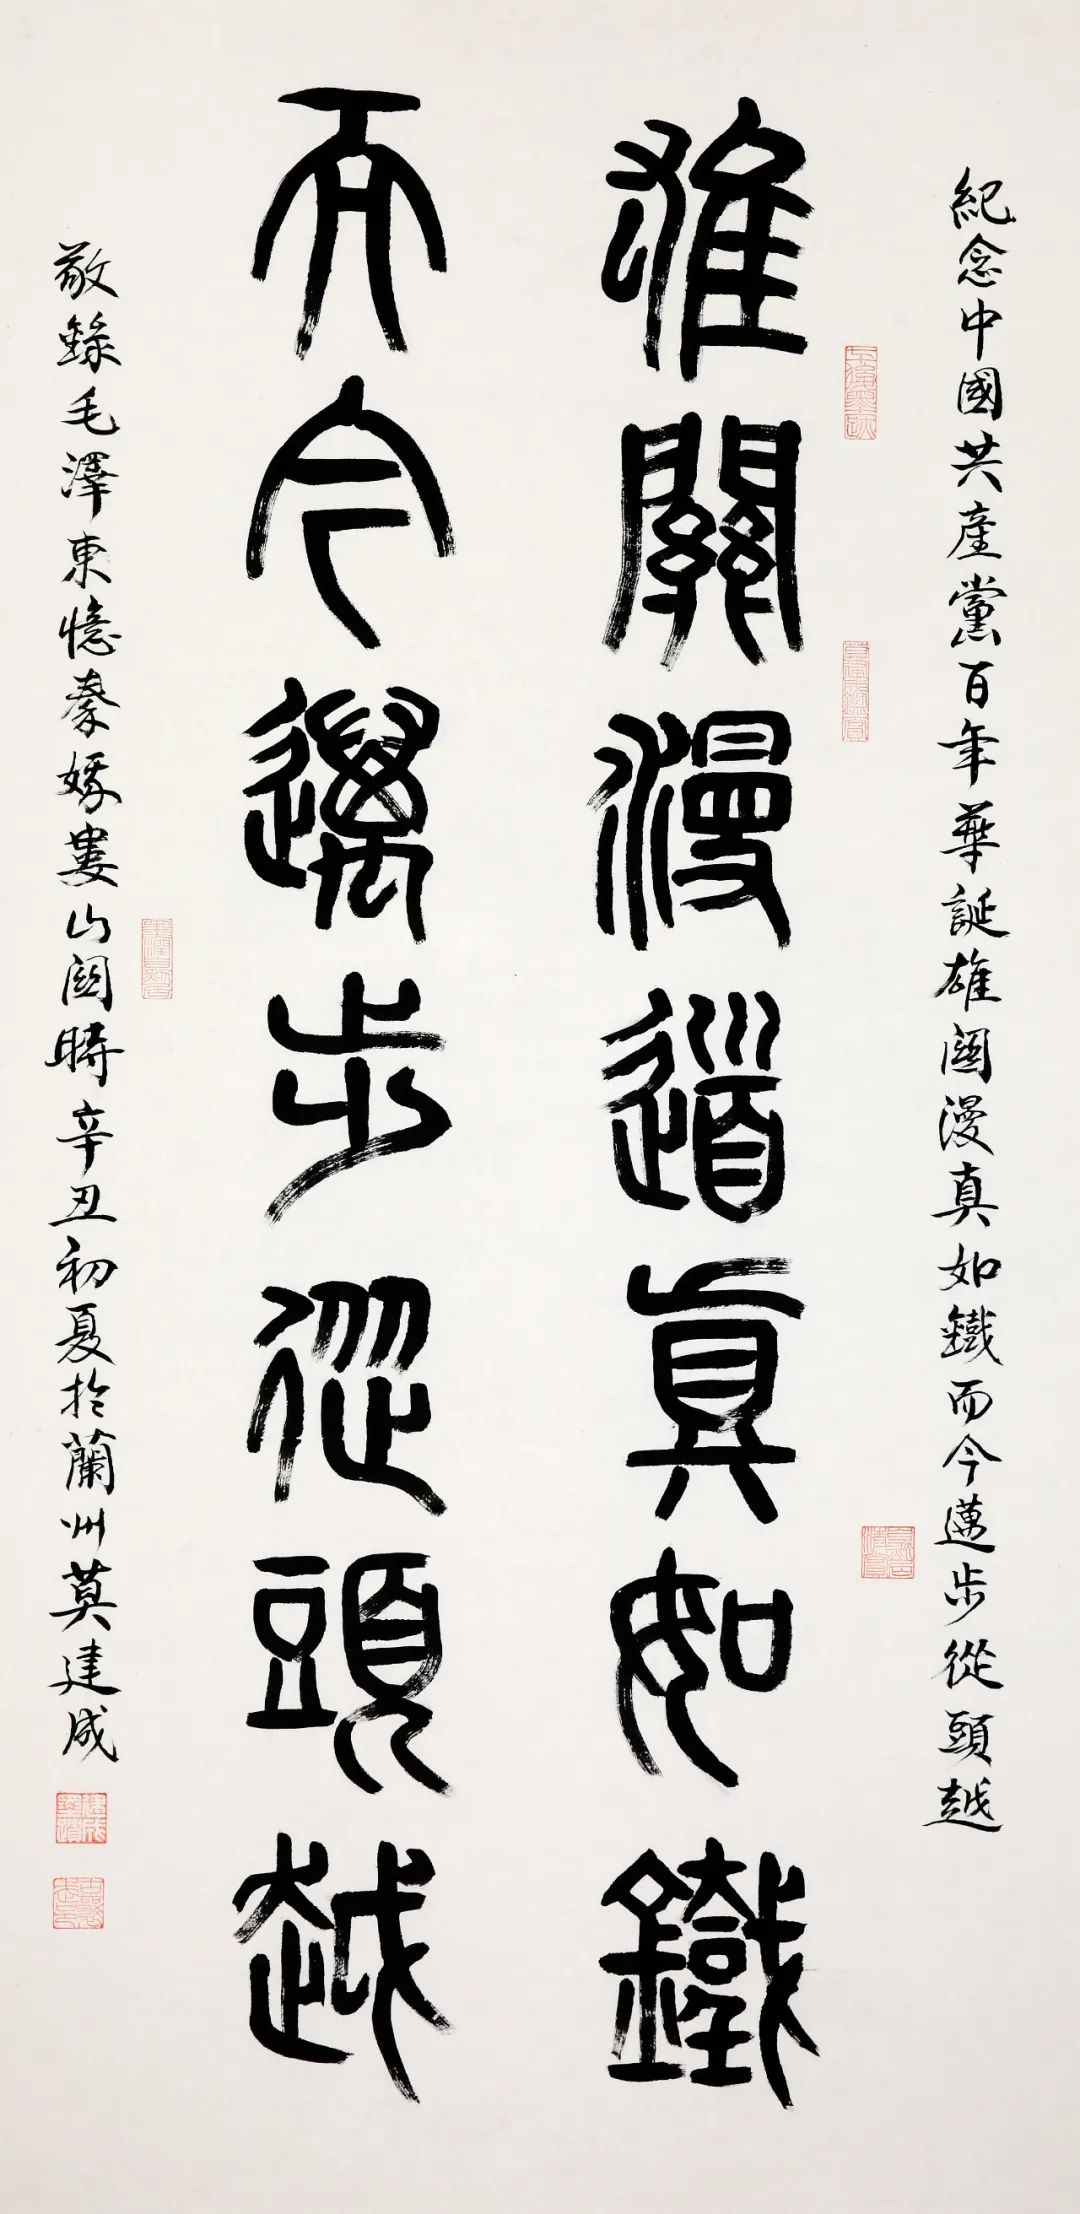 紀念中國共產黨百年華誕雄關漫真如鐵而今邁步從頭越
雄關漫道真如鐵
而今邁步從頭越
敬錄毛澤東憶秦娥婁山關時辛丑初夏於蘭州莫建成